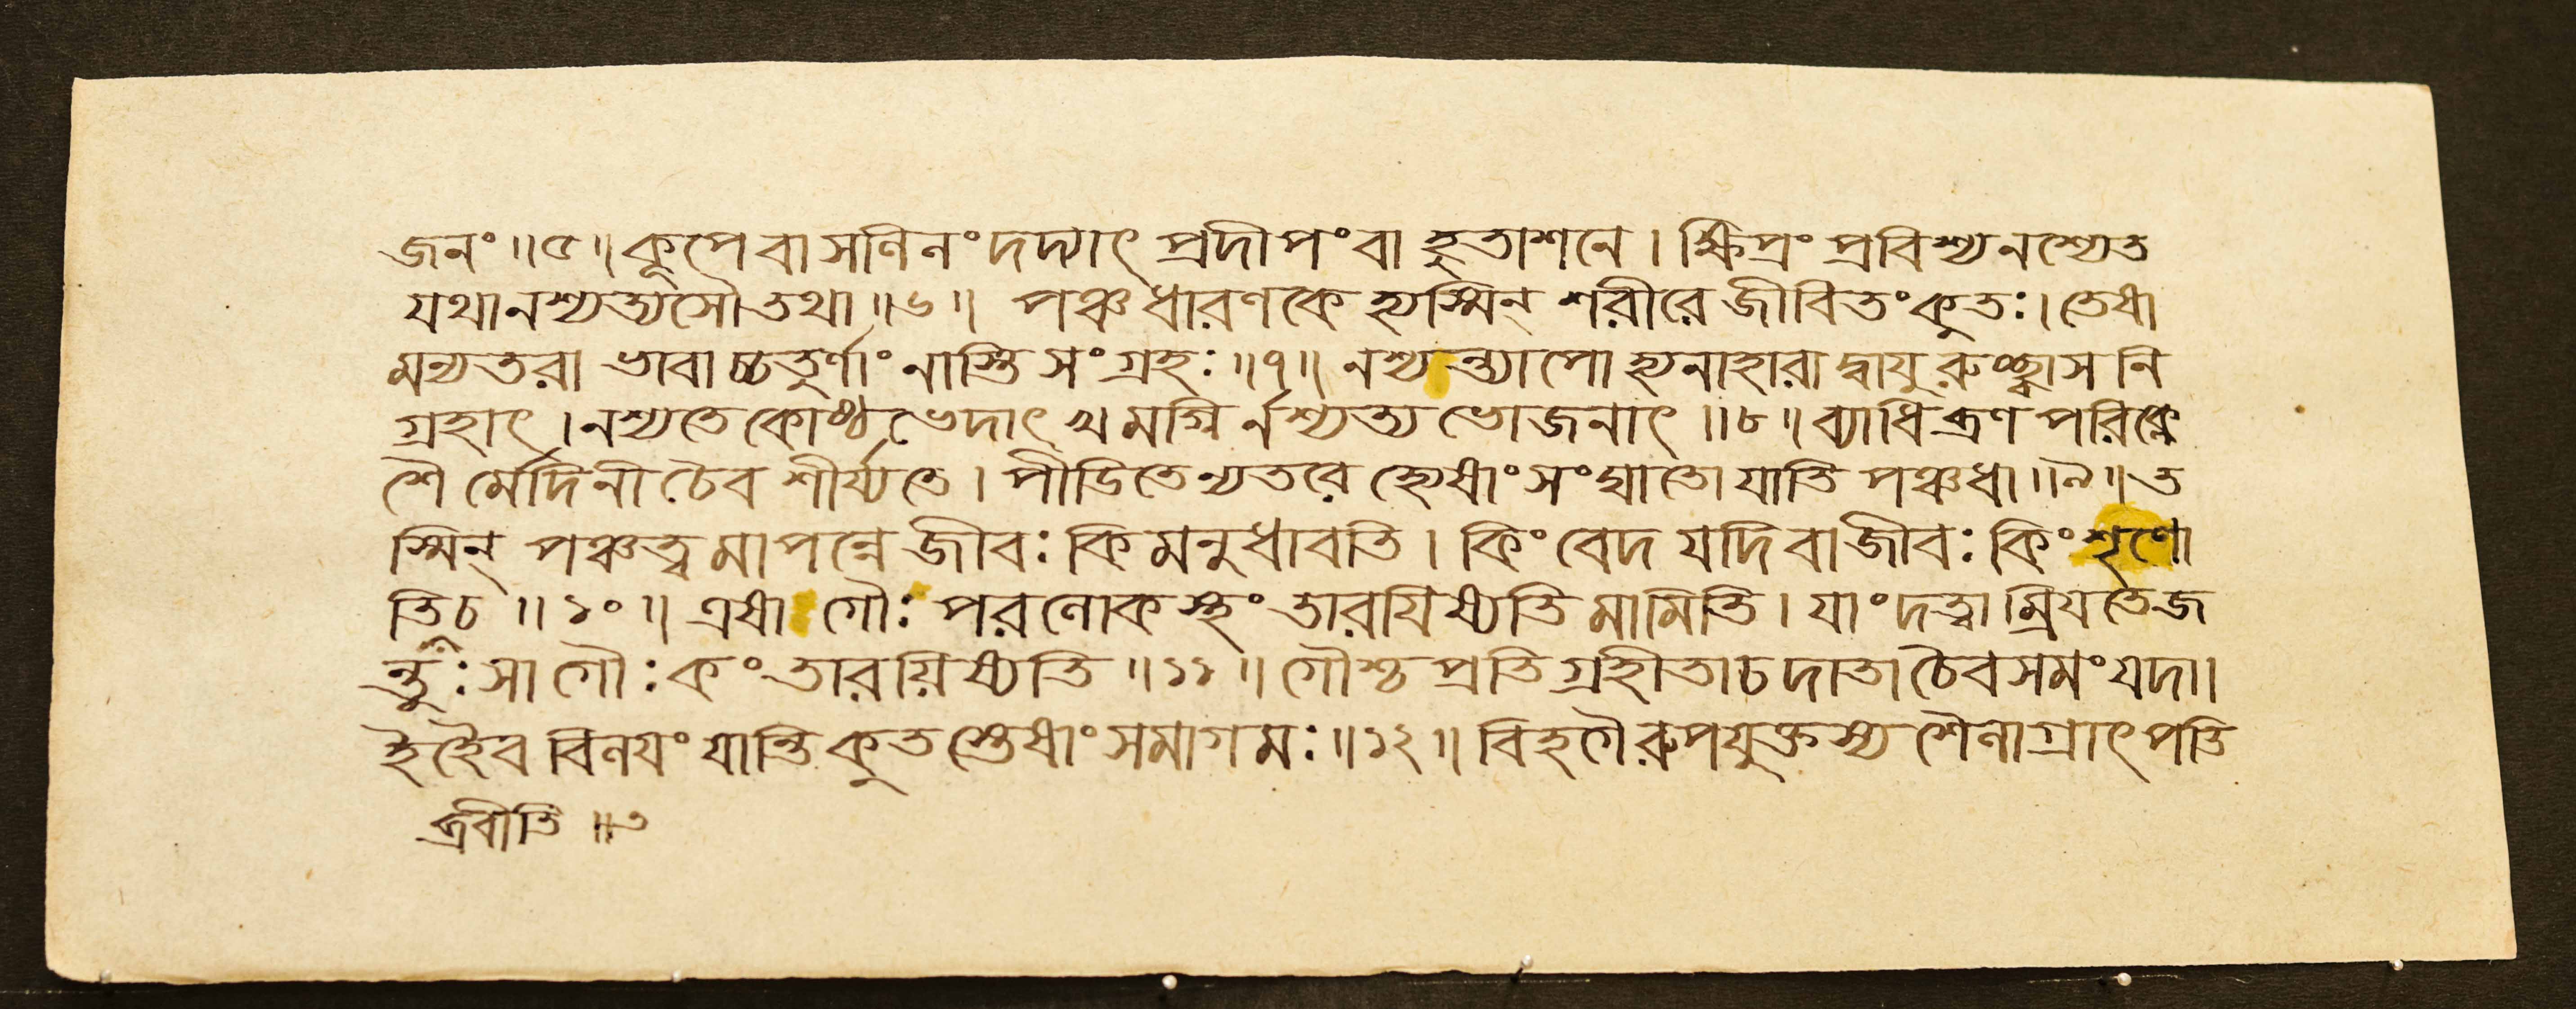 জনং ॥৫॥ কূপে বা সলিলং দদ্যাৎ প্রদীপং বা হুতাশনে । ক্ষিপ্রং প্রবিশ্য নশ্যেত
যথা নশ্যত্যসৌ তথা ॥৬॥ পঞ্চধারণকে হ্যস্মিন্ শরীরে জীবিতং কুতঃ । তেষা
মন্যতরা ভাবাচ্চতুর্ণাং নাস্তি সংগ্রহঃ ॥৭॥ নশ্যন্ত্যাপো হ্যনাহারাদ্বাযুরুচ্ছ্বাসনি
গ্রহাৎ । নশ্যতে কোষ্ঠভেদাৎ খমগ্নির্নশ্যত্যভোজনাৎ ॥৮॥ ব্যাধিব্রণপরিক্লে
শৈর্মেদিনী চৈব শীর্য্যতে । পীডিতেন্যতরে হ্যেষাং সংঘাতো যাতি পঞ্চধা ॥৯॥ ত
স্মিন্ পঞ্চত্বমাপন্নে জীবঃ কিমনুধাবতি । কিং বেদ যদি বা জীবঃ কিং শৃণো
তি চ ॥১০॥ এষা গৌঃ পরলোকস্থং তারযিষ্যতি মামিতি । যাং দত্ত্বা ম্রিযতে জ
ন্তুঃ সা গৌঃ কং তারয়িষ্যতি ॥১১॥ গৌশ্চ প্রতিগ্রহীতা চ দাতা চৈব সমং যদা ।
ইহৈব বিলযং যান্তি কুতস্তেষাং সমাগমঃ ॥১২॥ বিহগৈরুপযুক্তস্য শৈলাগ্রাৎ পতি
ব্রবীতি ॥৩